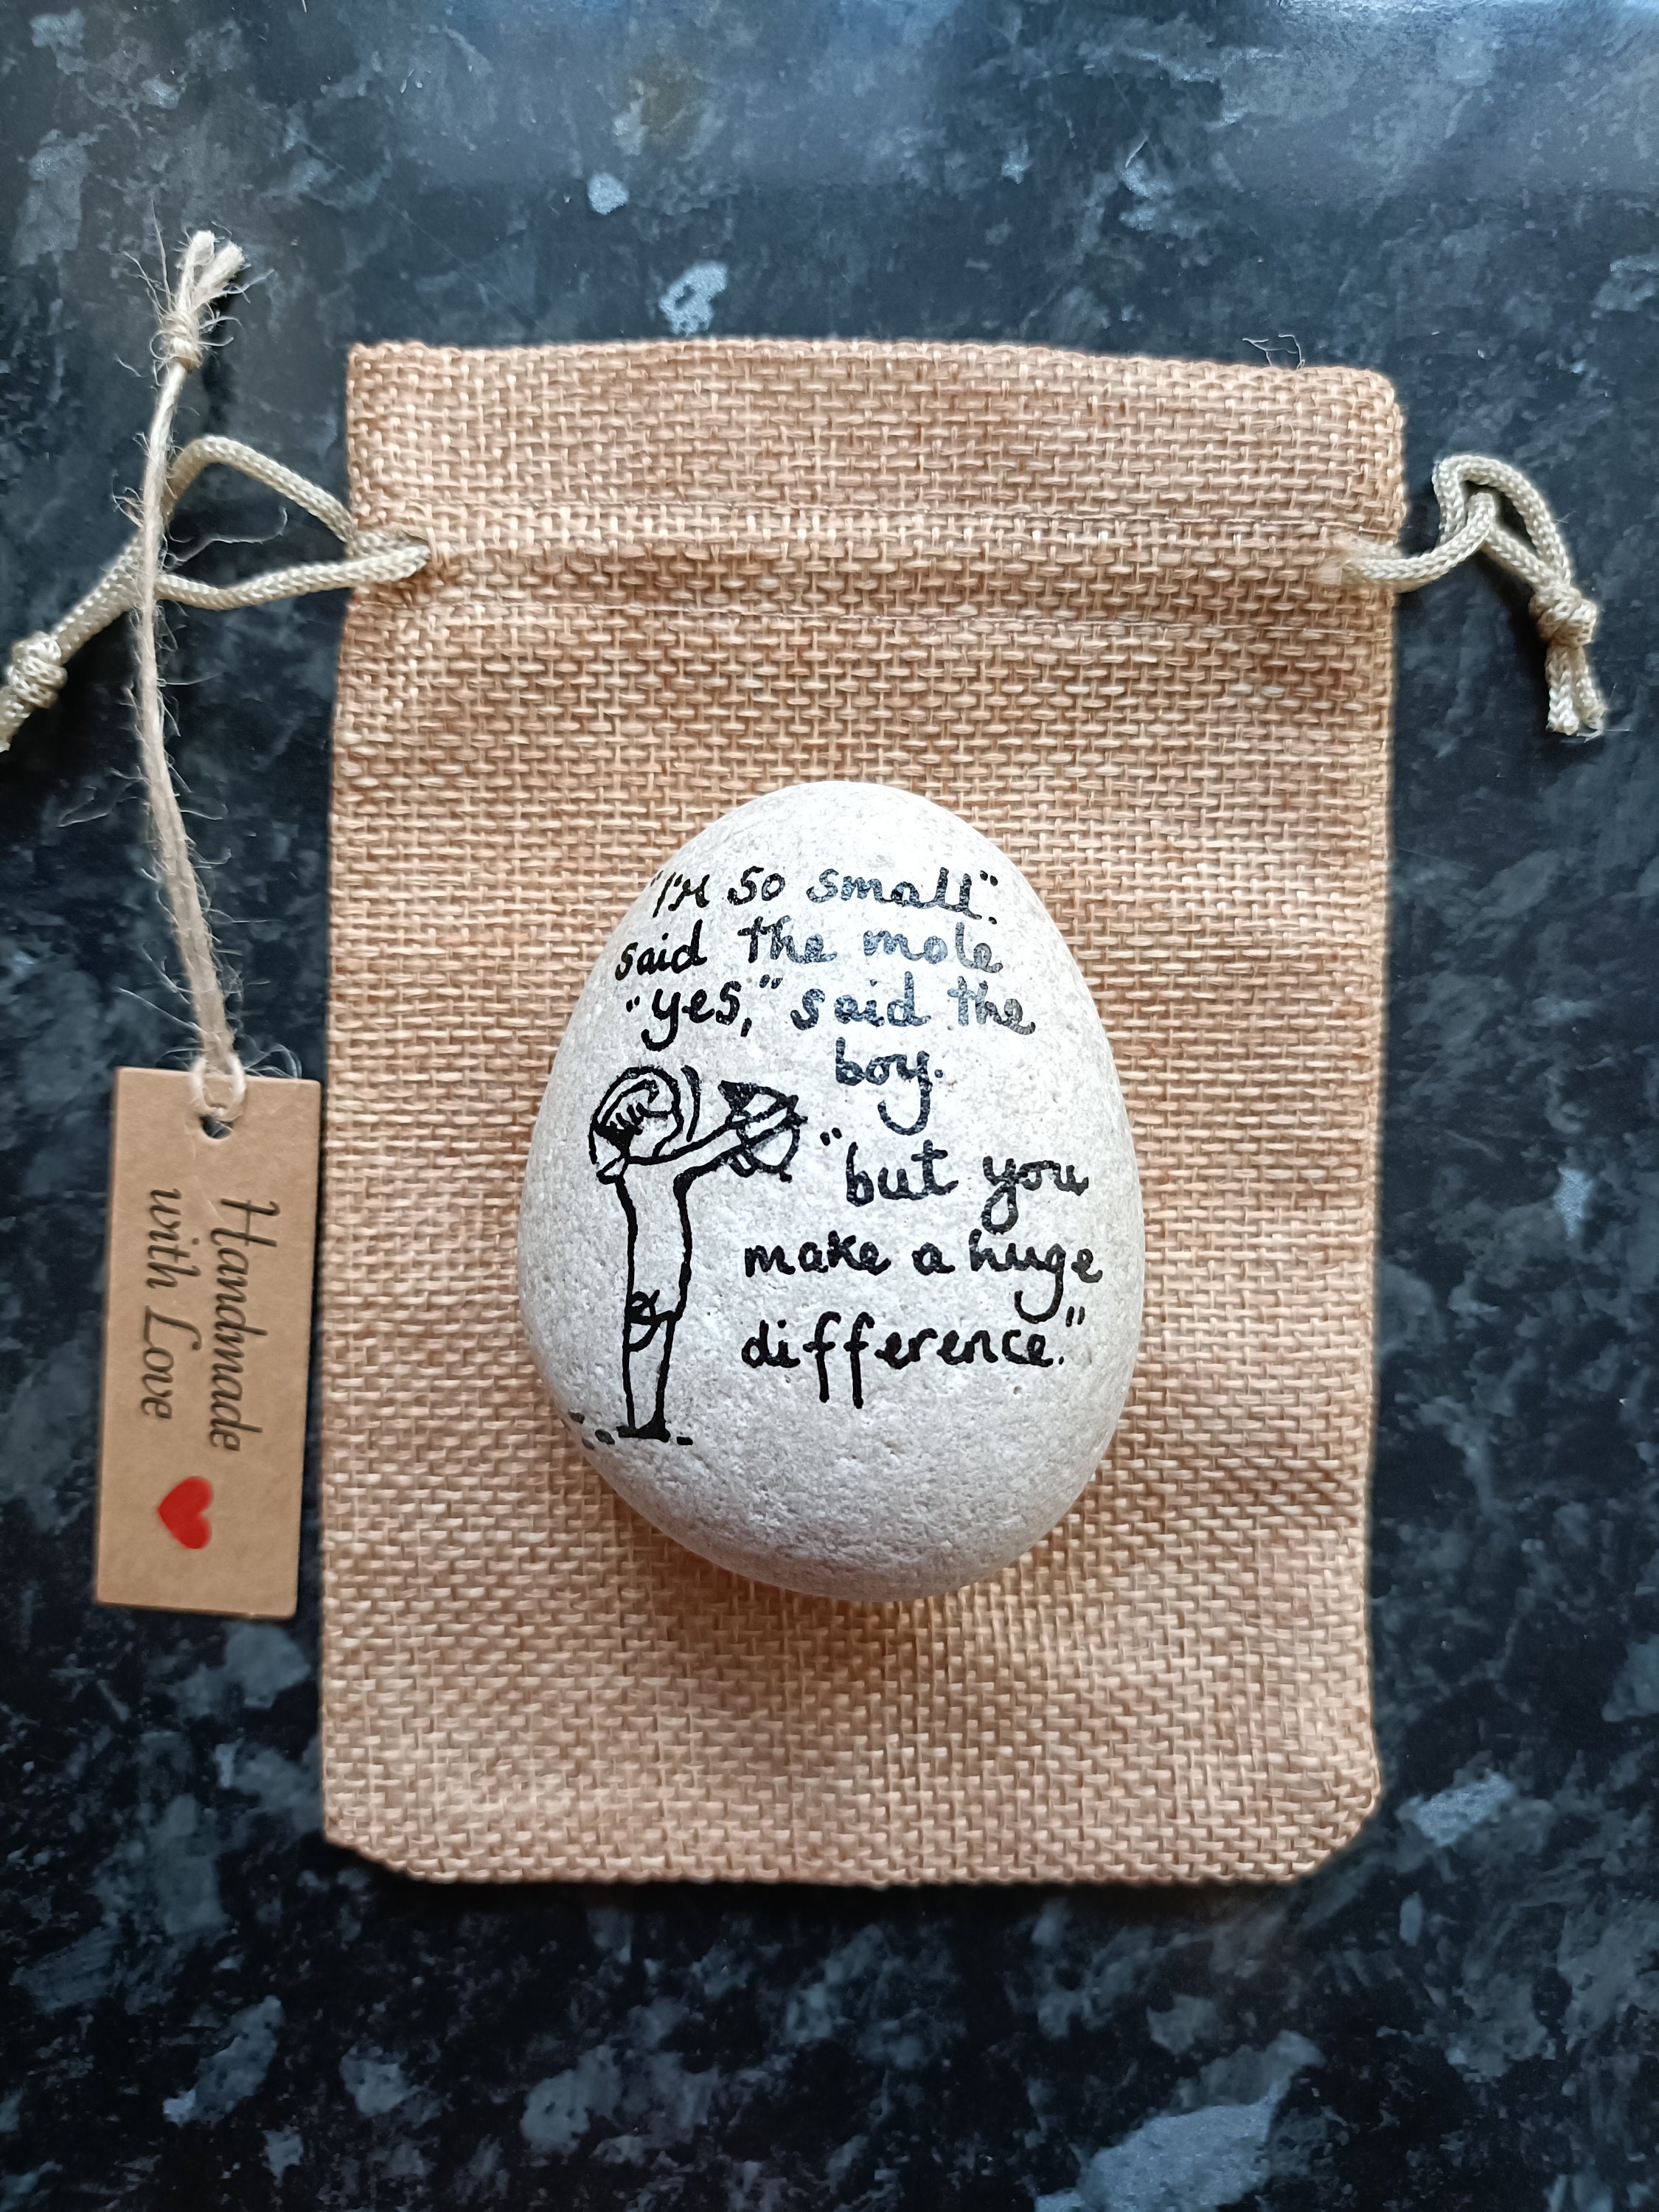 "I'M so small".
said the mole
"yes," said the
boy.
"but you
make a huge
difference."
Handmade
with Love